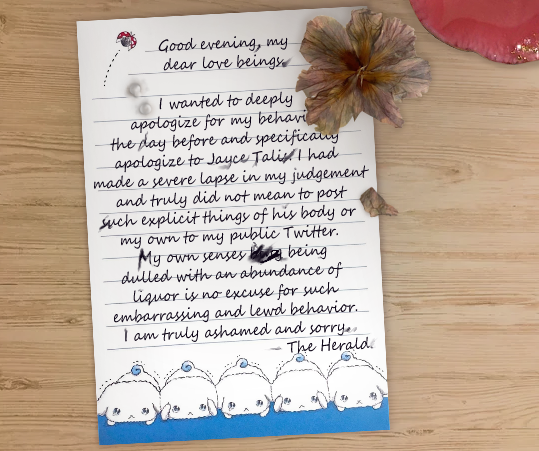 Good evening, my
dear love beings.
I wanted to deeply
apologize for my
the day before and specifically
apologize to Jayce Talis. I had
made a severe lapse in my judgement
and truly did not mean to post
such explicit things of his body or
my own to my public Twitter.
My own senses being
dulled with an abundance of
liquor is no excuse for such
embarrassing and lewd behavior.
I am truly ashamed and sorry.
— The Herald.